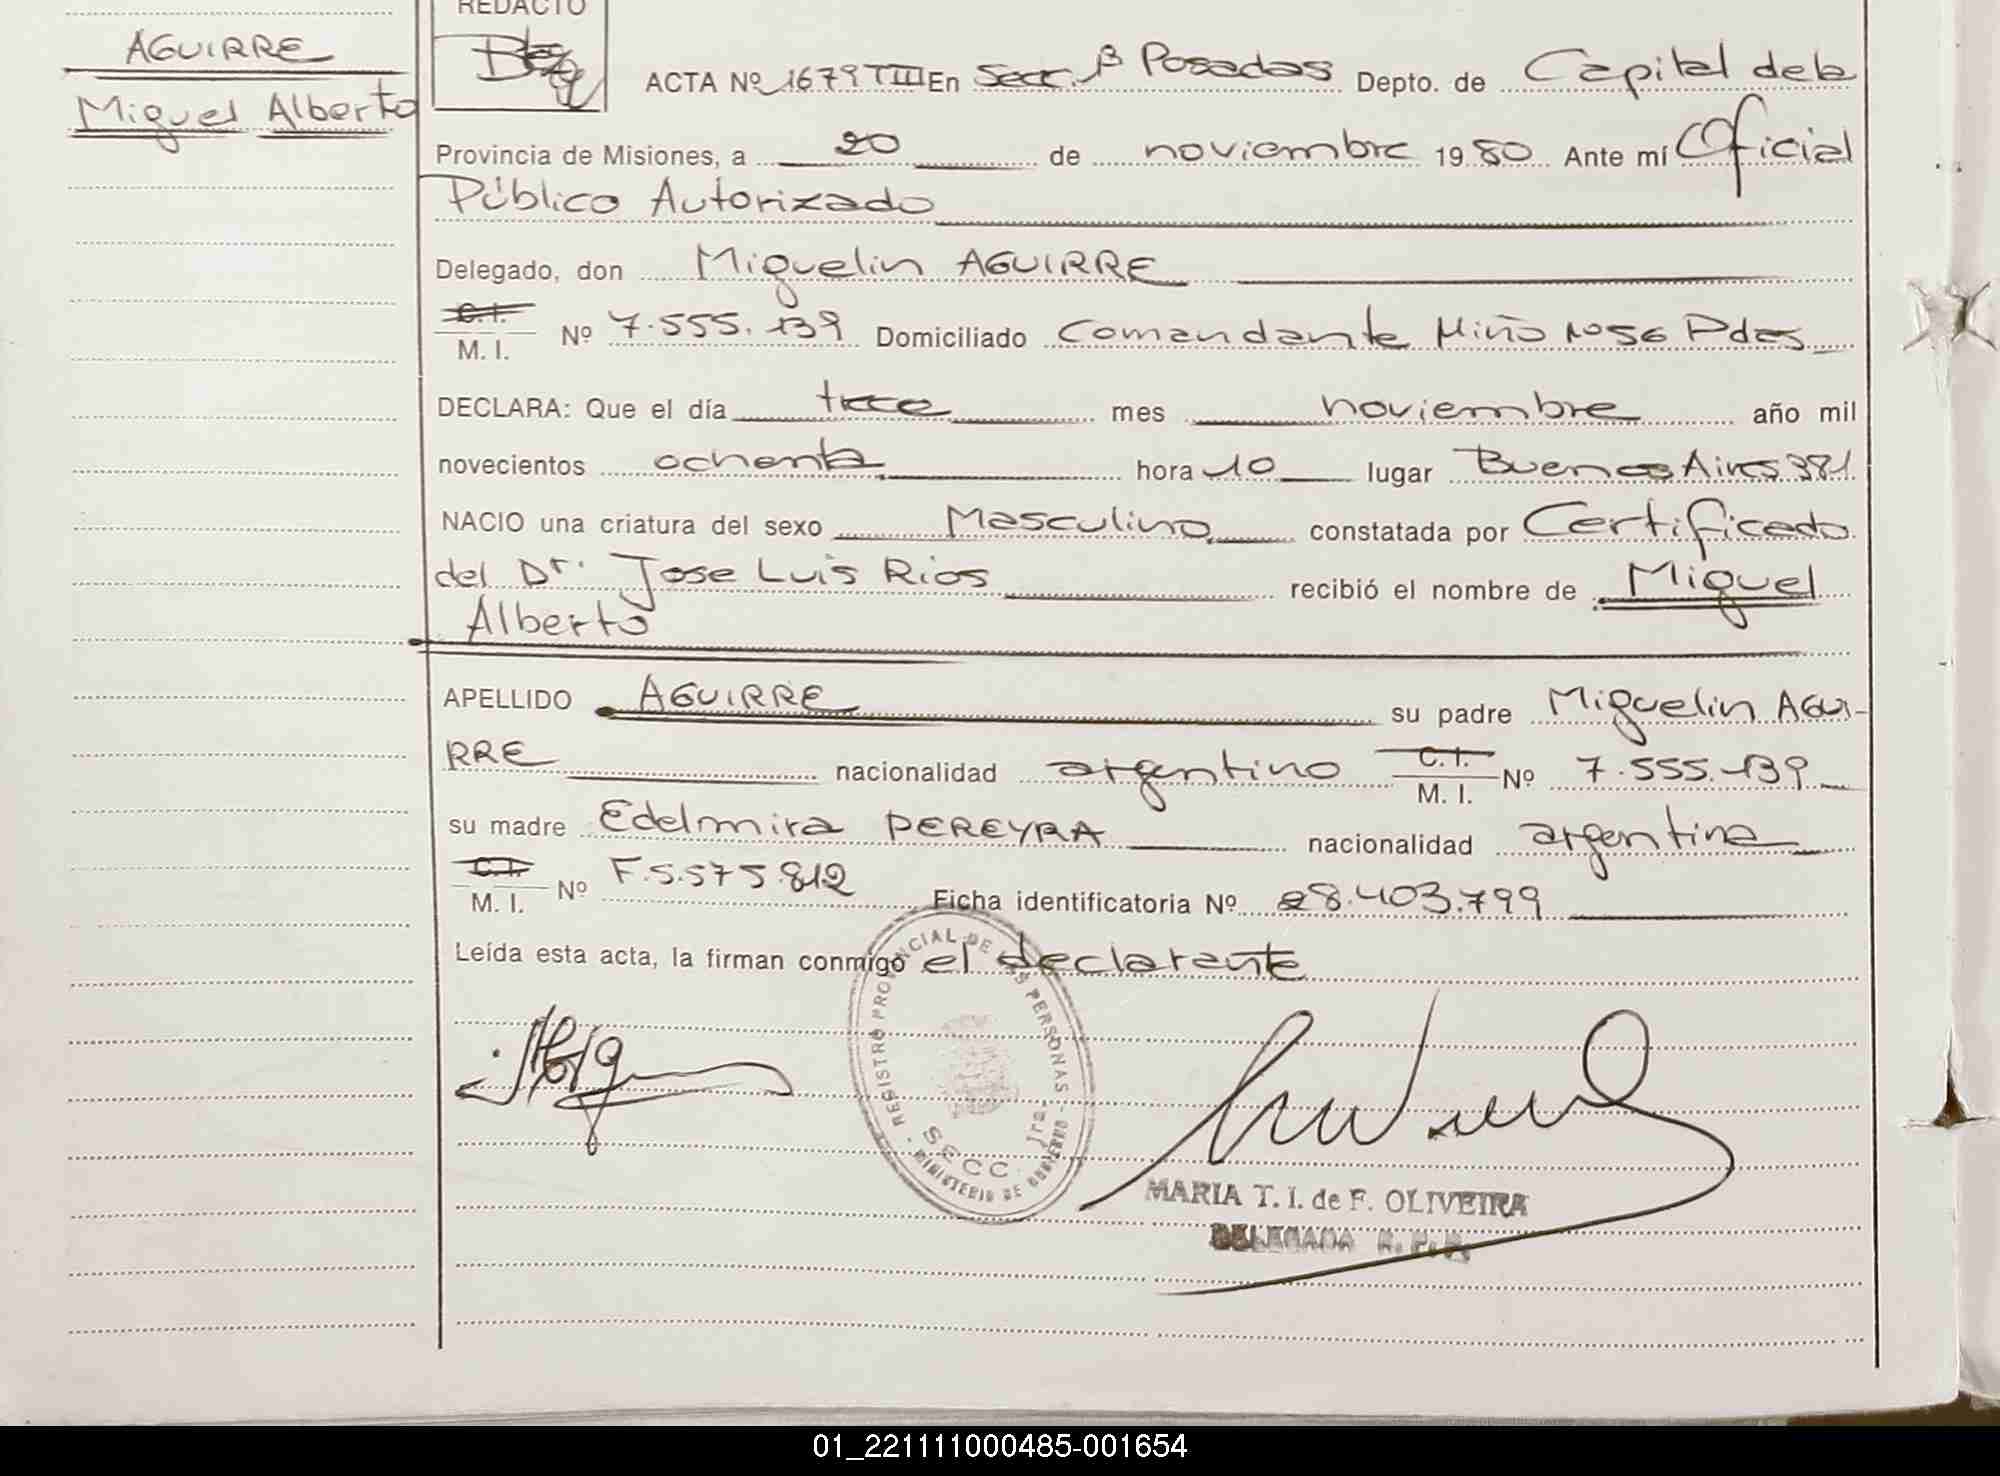 REDACTO
AGUIRRE
Miguel Alberto
ACTA Nº 1679 TIII En Secc. Posadas Depto. de Capital de la
Provincia de Misiones, a 20 de noviembre 1980 Ante mí Oficial
Público Autorizado
Delegado, don Miguelin AGUIRRE
C.I. M. I. Nº 7.555.139 Domiciliado Comandante Miño Nº 56 Pdas
DECLARA: Que el día trece mes noviembre año mil
novecientos ochenta hora 10 lugar Buenos Aires 381
NACIO una criatura del sexo Masculino constatada por Certificado
del Dr. Jose Luis Rios recibió el nombre de Miguel
Alberto
APELLIDO AGUIRRE su padre Miguelin AGUI-
RRE nacionalidad argentino C.I. M. I. Nº 7.555.139
su madre Edelmira PEREYRA nacionalidad argentina
C.I. M. I. Nº F.5.575.812 Ficha identificatoria Nº 28.403.799
Leída esta acta, la firman conmigo el declarante
REGISTRO PROVINCIAL DE LAS PERSONAS
SECC. 1ra.
MINISTERIO DE GOBIERNO
MARIA T. I. de F. OLIVEIRA
DELEGADA R. P. P.
01_221111000485-001654